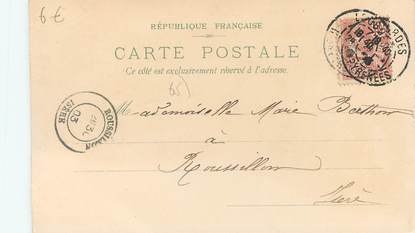 6€
RÉPUBLIQUE FRANÇAISE
CARTE POSTALE
Ce côté est exclusivement réservé à l'adresse.
65)
LOURDES
PYRÉNÉES
ROUSSILLON
03
ISÈRE
Mademoiselle Marie Berthon
à
Roussillon
Isère